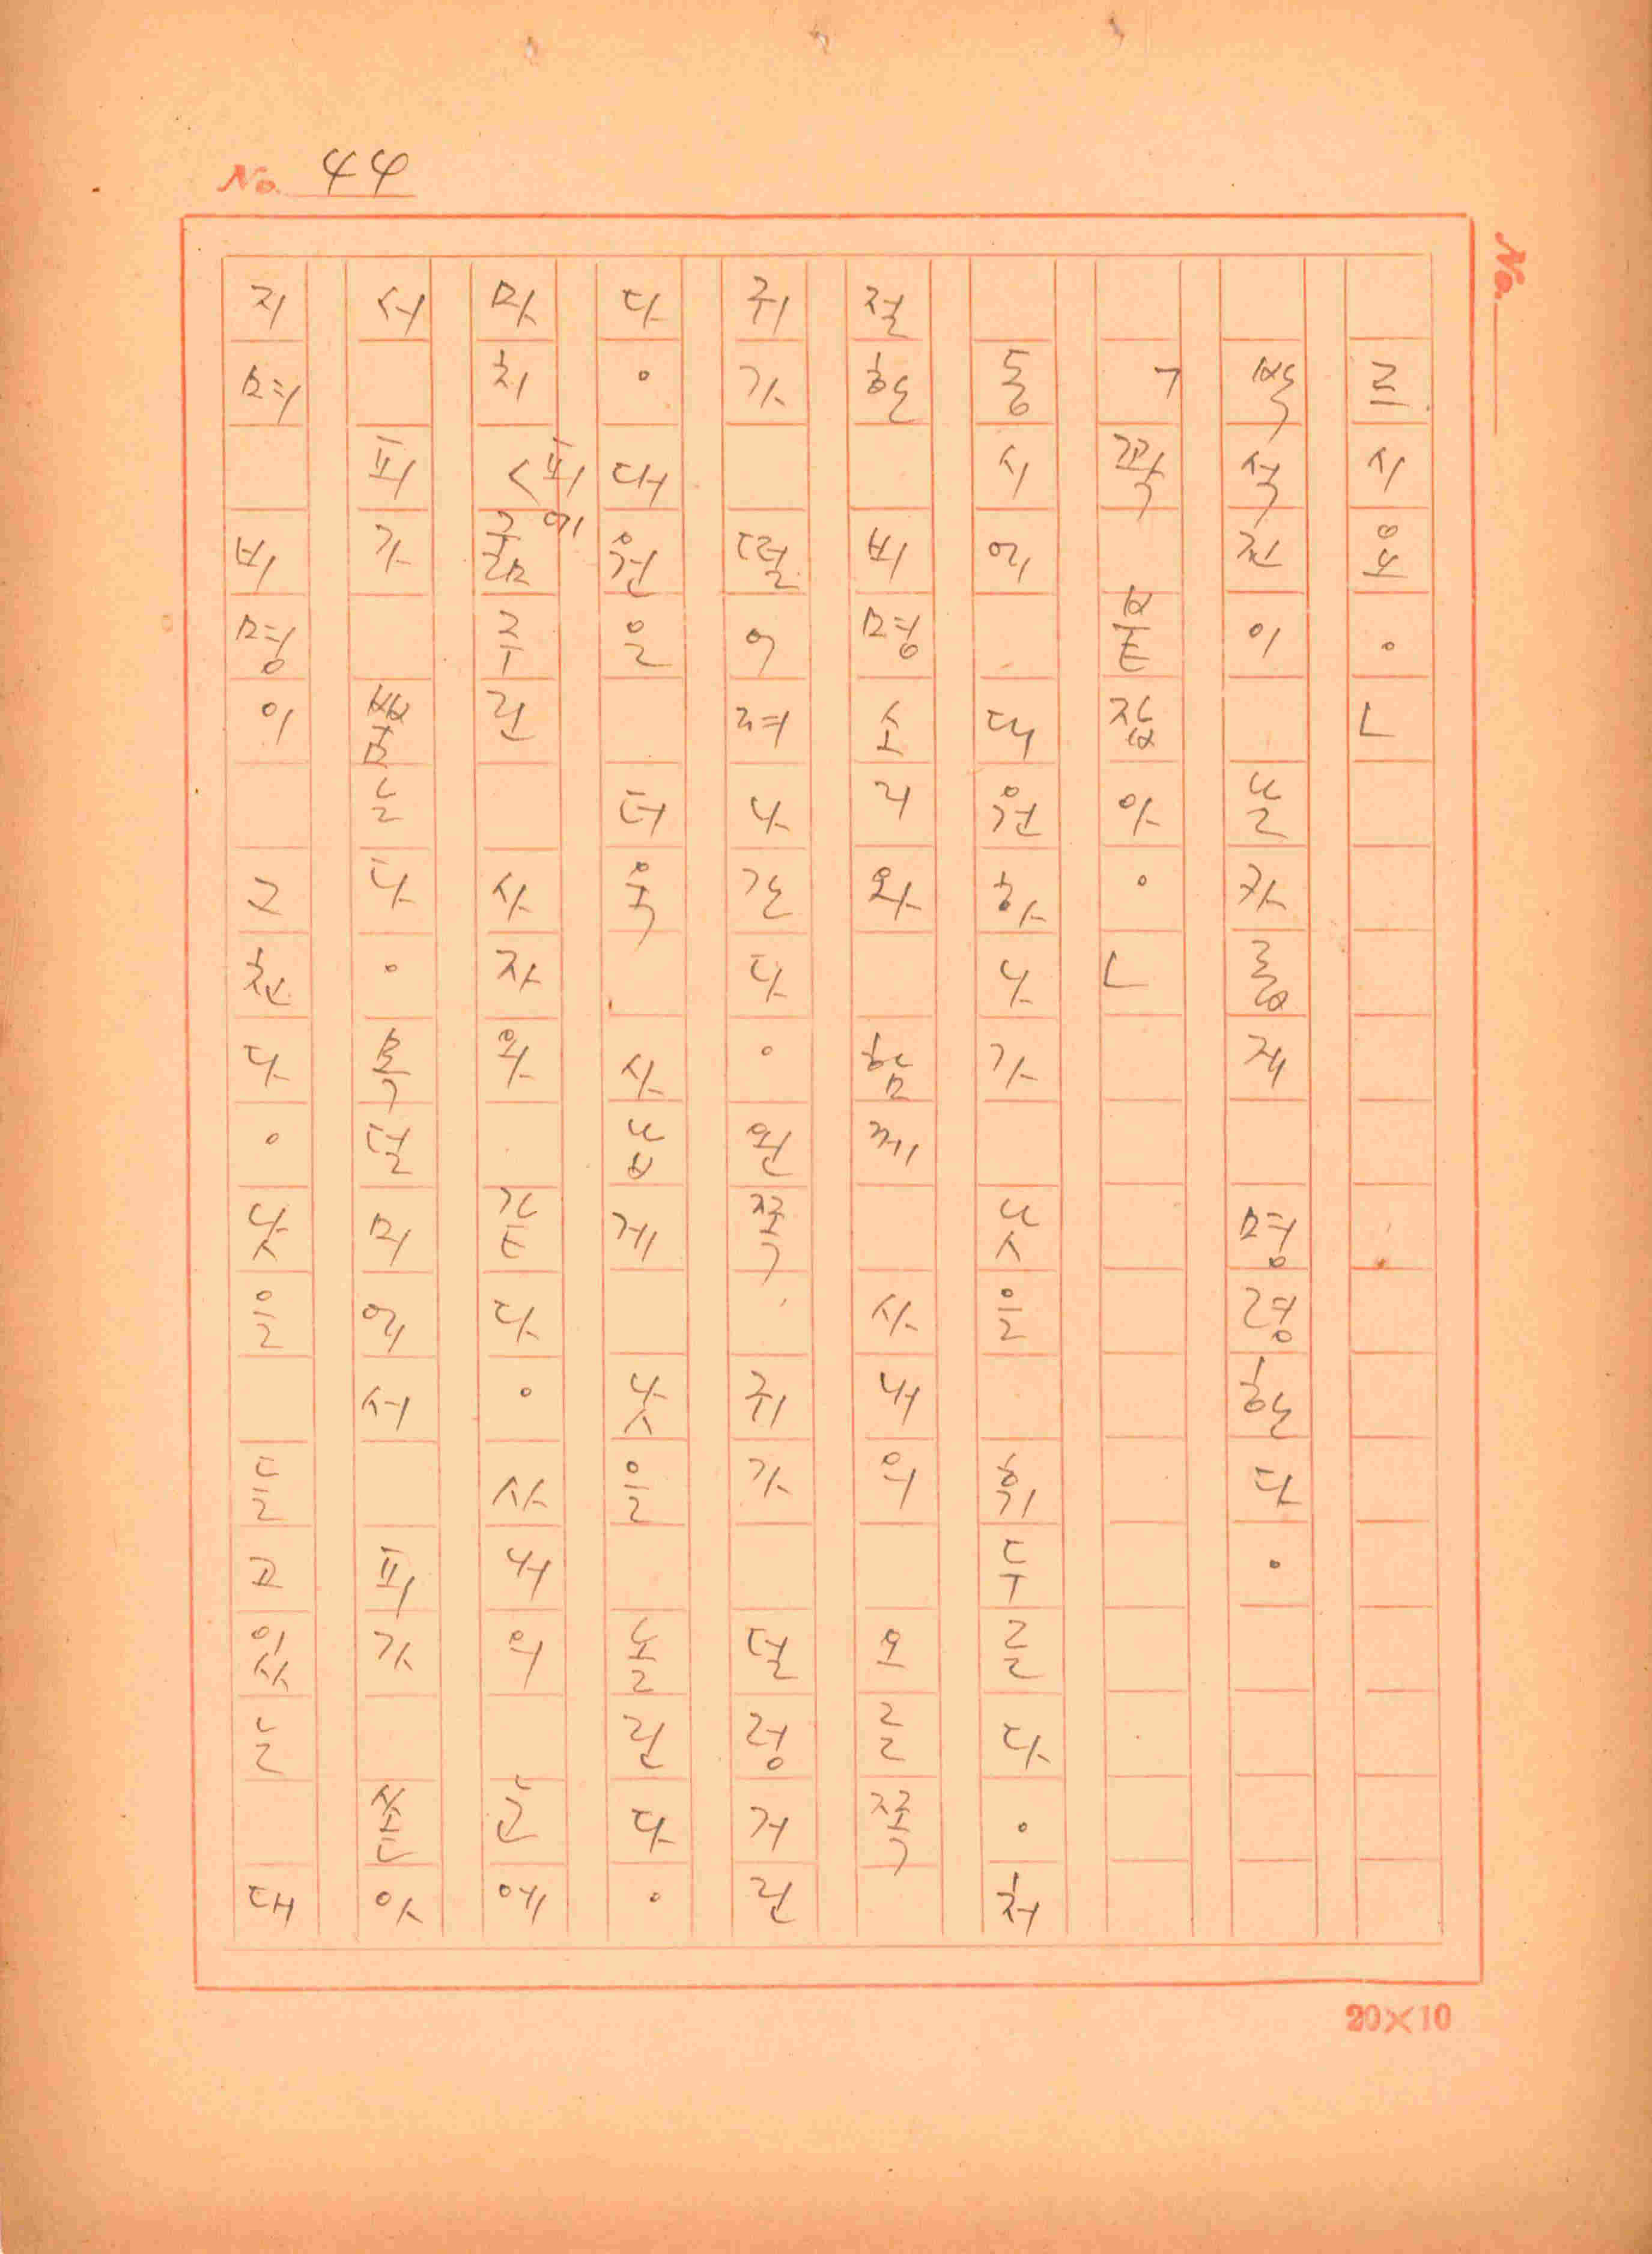 No. 44
No.
르시요。」
박석진이 날카롭게 명령한다。
「꽉 붙잡아。」
동시에 대원하나가 낫을 휘두른다。처
절한 비명소리와 함께 사내의 오른쪽
귀가 떨어져나간다。왼쪽 귀가 덜렁거린
다。대원은 더욱 사납게 낫을 놀린다。
마치 피에 굶주린 사자와 같다。사내의 눈에
서 피가 뿜는다。목덜미에서 피가 쏟아
지며 비명이 그친다。낫을 들고있는 대
20×10